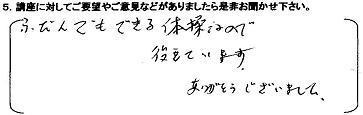 5. 講座に対してご要望やご意見などがありましたら是非お聞かせ下さい。
ふだんでもできる体操なので
役立ています
ありがとうございました。